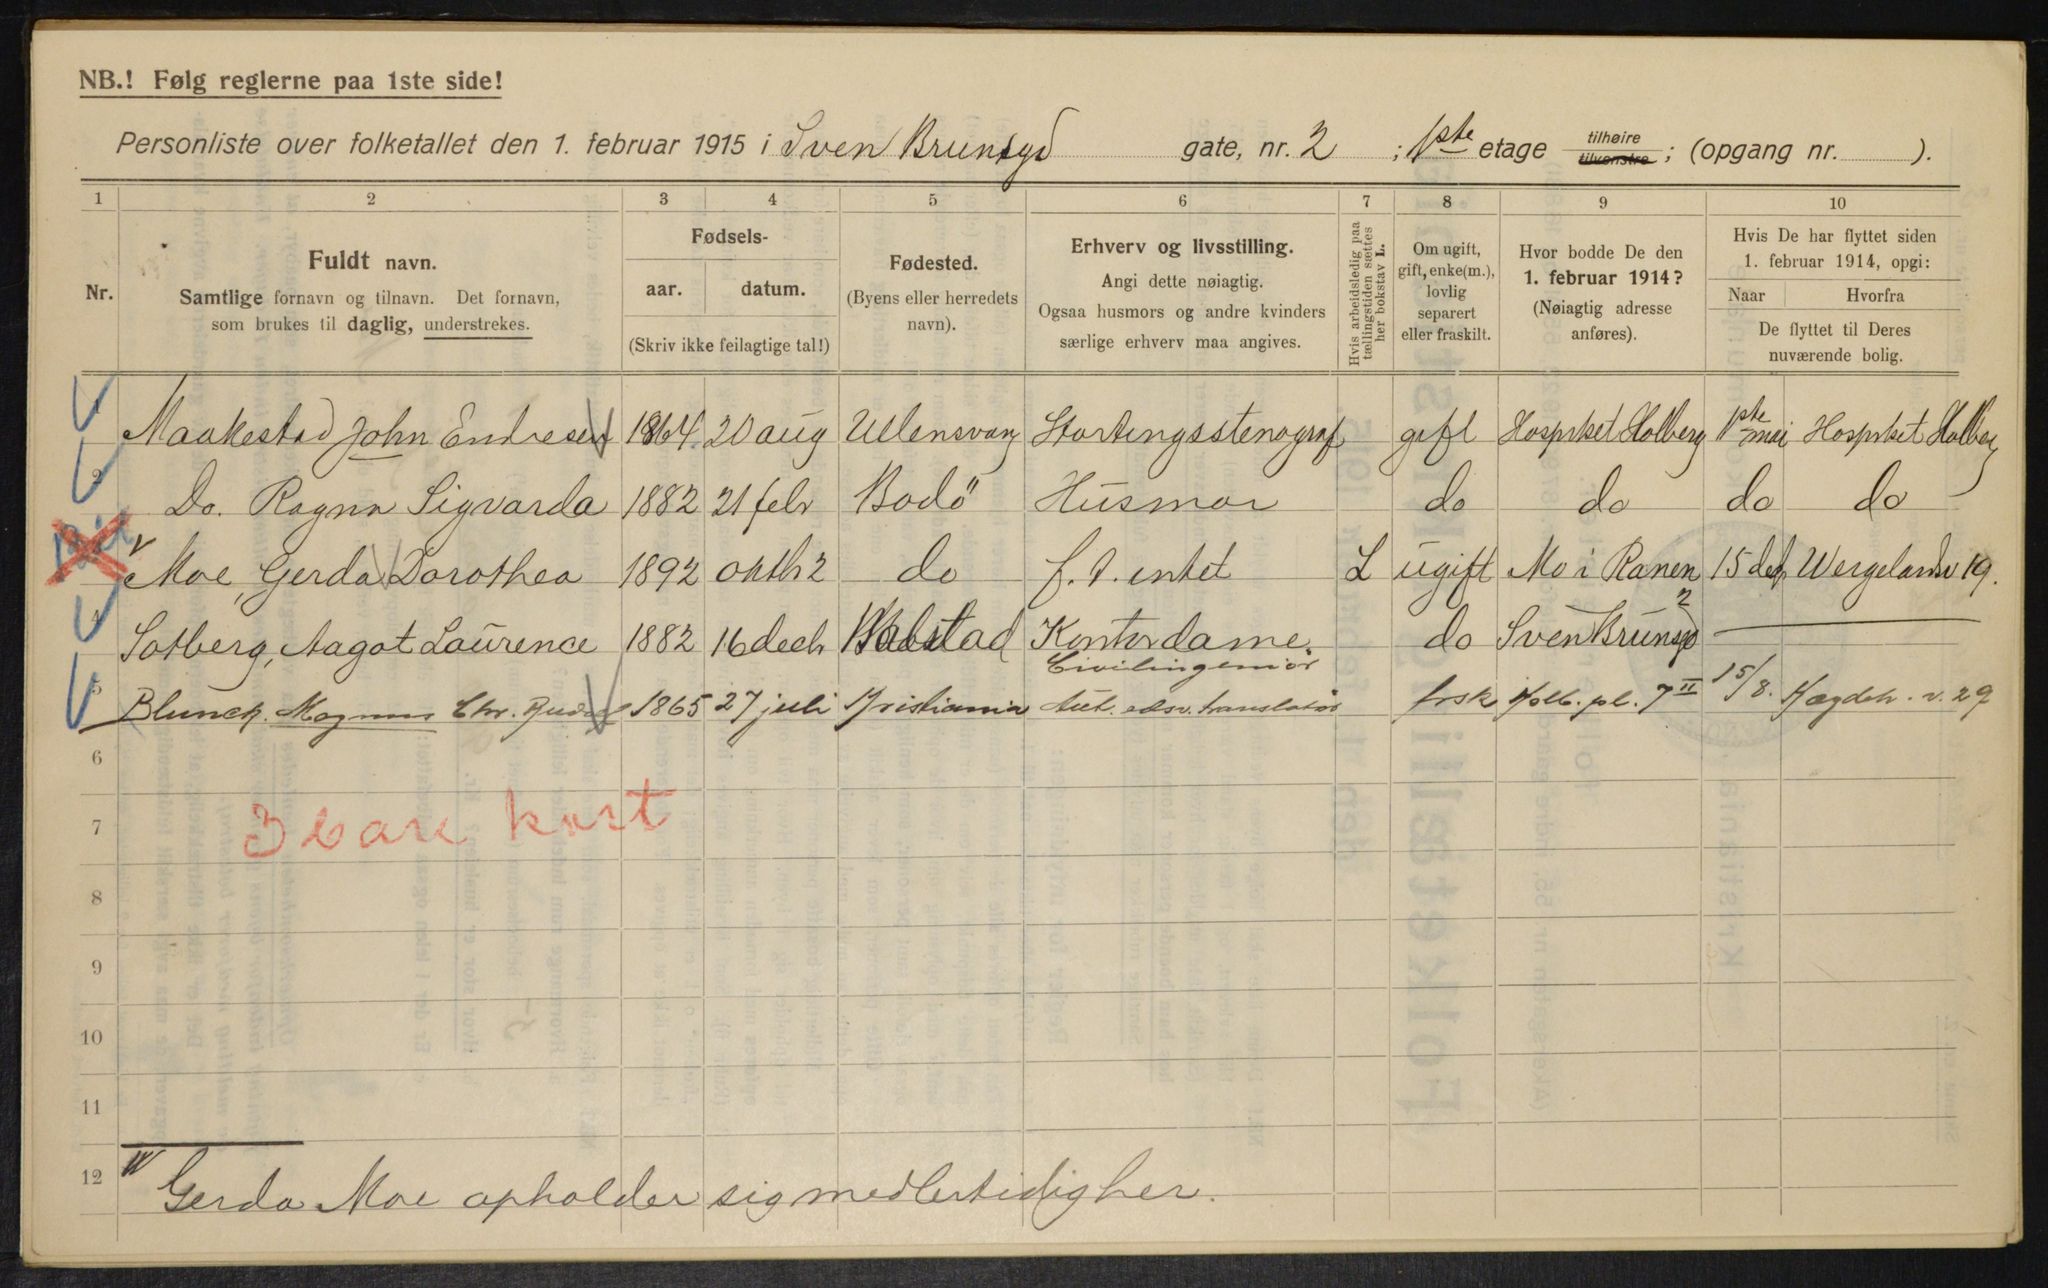 NB.! Følg reglerne paa 1ste side!
Personliste over folketallet den 1. februar 1915 i Sven Brunsgd gate, nr. 2 ; 1ste etage tilhøire tilvenstre ; (opgang nr. ).
1 2 3 4 5 6 7 8 9 10
Nr.
Fuldt navn.
Samtlige fornavn og tilnavn. Det fornavn,
som brukes til daglig, understrekes.
Fødsels-
aar. datum.
(Skriv ikke feilagtige tal!)
Fødested.
(Byens eller herredets
navn).
Erhverv og livsstilling.
Angi dette nøiagtig.
Ogsaa husmors og andre kvinders
særlige erhverv maa angives.
Hvis arbeidsledig paa
tællingstiden sættes
her bokstav L.
Om ugift,
gift, enke(m.),
lovlig
separert
eller fraskilt.
Hvor bodde De den
1. februar 1914?
(Nøiagtig adresse
anføres).
Hvis De har flyttet siden
1. februar 1914, opgi:
Naar Hvorfra
De flyttet til Deres
nuværende bolig.
1 Maakestad John Endresen 1864 20 aug Ullensvang Stortingsstenograf gift Hospitset Holberg 1ste mai Hospitset Holberg
2 Do. Ragna Sigvarda 1882 21 febr Bodö Husmor do do do do
Moe, Gerda Dorothea 1892 oktbr 2 do f. t. intet L ugift Mo i Ranen 15 dec Wergelandsv 19.
4 Solberg, Aagot Laurence 1882 16 decbr Kontordame. do Sven Brunsgd 2
5 Blunck, Magnus Chr. 1865 27 juli Kristiania Civilingeniör
Aut. edsv. translatör frsk Holb. pl. 7 II 15/8. Hægdeh. v. 29
6
7 3 bare kort
8
9
10
11
12 Gerda Moe opholder sig midlertidig her.